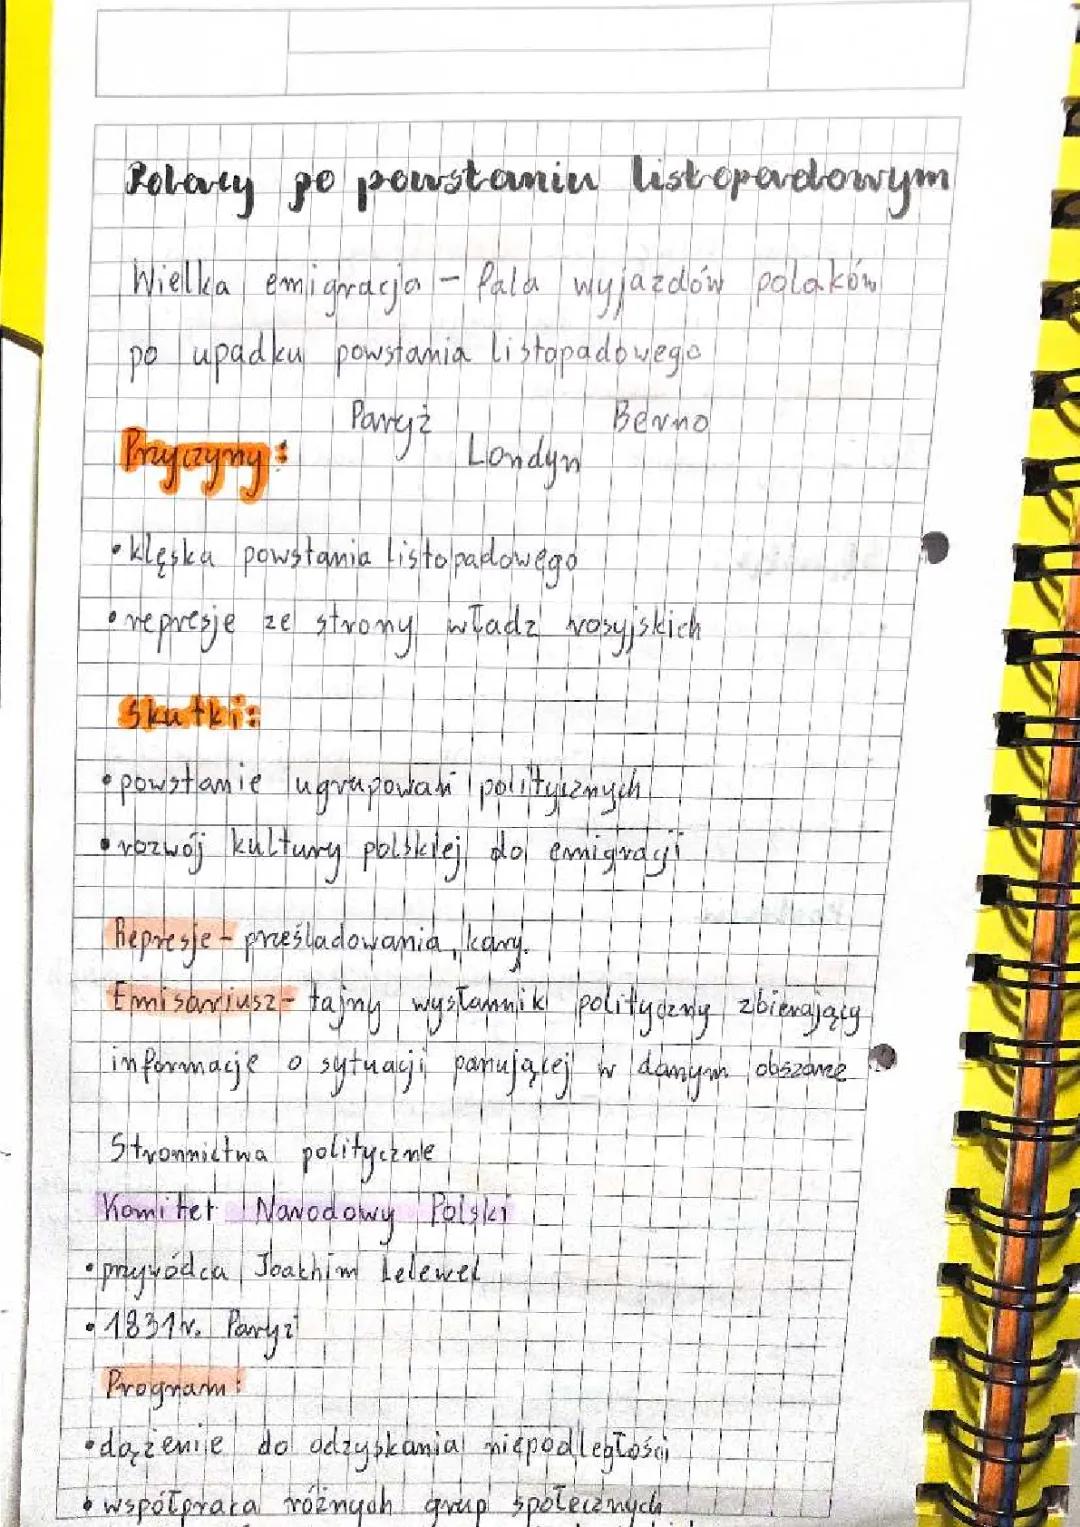 Polacy po powstaniu listopadowym
Wielka emigracja - fala wyjazdów polaków
po upadku powstania listopadowego
Paryż Berno
Przyczyny: Londyn
• klęska powstania listopadowego
• represje ze strony władz rosyjskich
Skutki:
• powstanie ugrupowań politycznych
• rozwój kultury polskiej do emigracji
Represje - prześladowania, kary.
Emisariusz - tajny wysłannik polityczny zbierający
informacje o sytuacji panującej w danym obszarze
Stronnictwa polityczne
Komitet Narodowy Polski
• przywódca Joachim Lelewel
• 1831r. Paryż
Program:
• dążenie do odzyskania niepodległości
• współpraca różnych grup społecznych